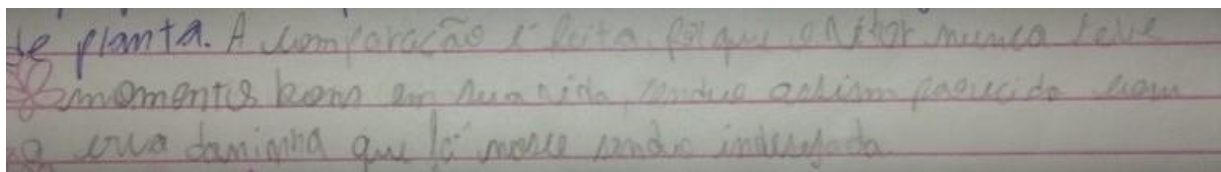 de planta. A comparação é feita, porque Vitor nunca teve
momentos bons em sua vida, sendo assim parecido com
a erva daninha que já nasce sendo indesejada.